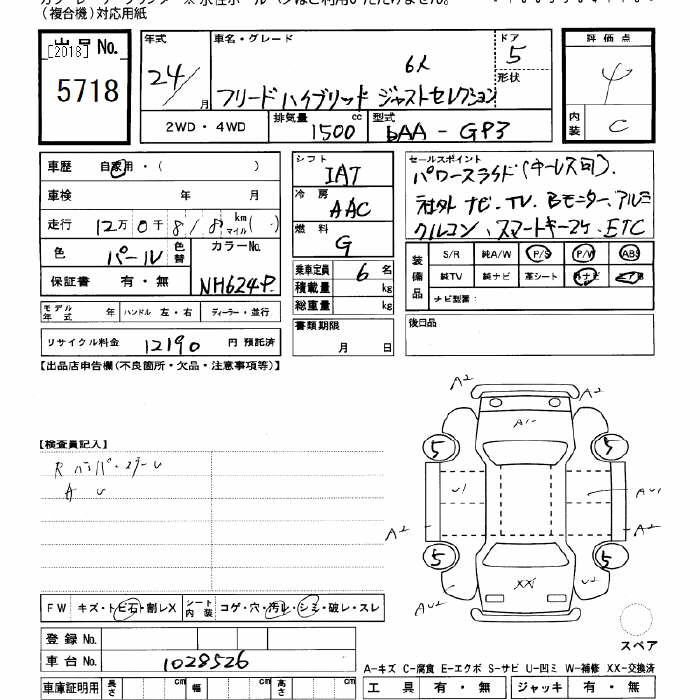 (複合機)対応用紙
出品No.
[2013]
5718
年式
24/
月
車名・グレード
6人
フリードハイブリッド ジャストセレクション
ドア
5
形状
2WD・4WD
排気量 1500 cc
型式 DAA - GP3
評価点
4
内装
C
車歴 自家用・( )
車検 年 月
走行 12万0千 km マイル ( )
色 パール 色替 カラーNo. NH624P
保証書 有・無
モデル年式 年 ハンドル 左・右 ディーラー・並行
リサイクル料金 12190 円 預託済
シフト
IAT
冷房
AAC
燃料
G
乗車定員 6 名
積載量 kg
総重量 kg
書類期限
月 日
セールスポイント
パワースライド(キーレス可).
社外ナビ.TV.Bモニター.アルミ
クルコン.スマートキー2ケ.ETC
装備品
S/R 純A/W P/S P/W ABS
純TV 純ナビ 革シート 外ナビ エアB
ナビ型番:
後日品
【出品店申告欄(不良箇所・欠品・注意事項等)】
【検査員記入】
R バンパー
A U
A2
A2
A1
5
5
U1
AU1
A2
A2
5
5
AU2
XX
U2
スペア
FW キズ・トビ石・割レX シート内装 コゲ・穴・汚レ・シミ・破レ・スレ
登録No.
車台No. 1028526
車庫証明用 長さ cm 幅 cm 高さ cm
A-キズ C-腐食 E-エクボ S-サビ U-凹ミ W-補修 XX-交換済
工具 有・無 ジャッキ 有・無